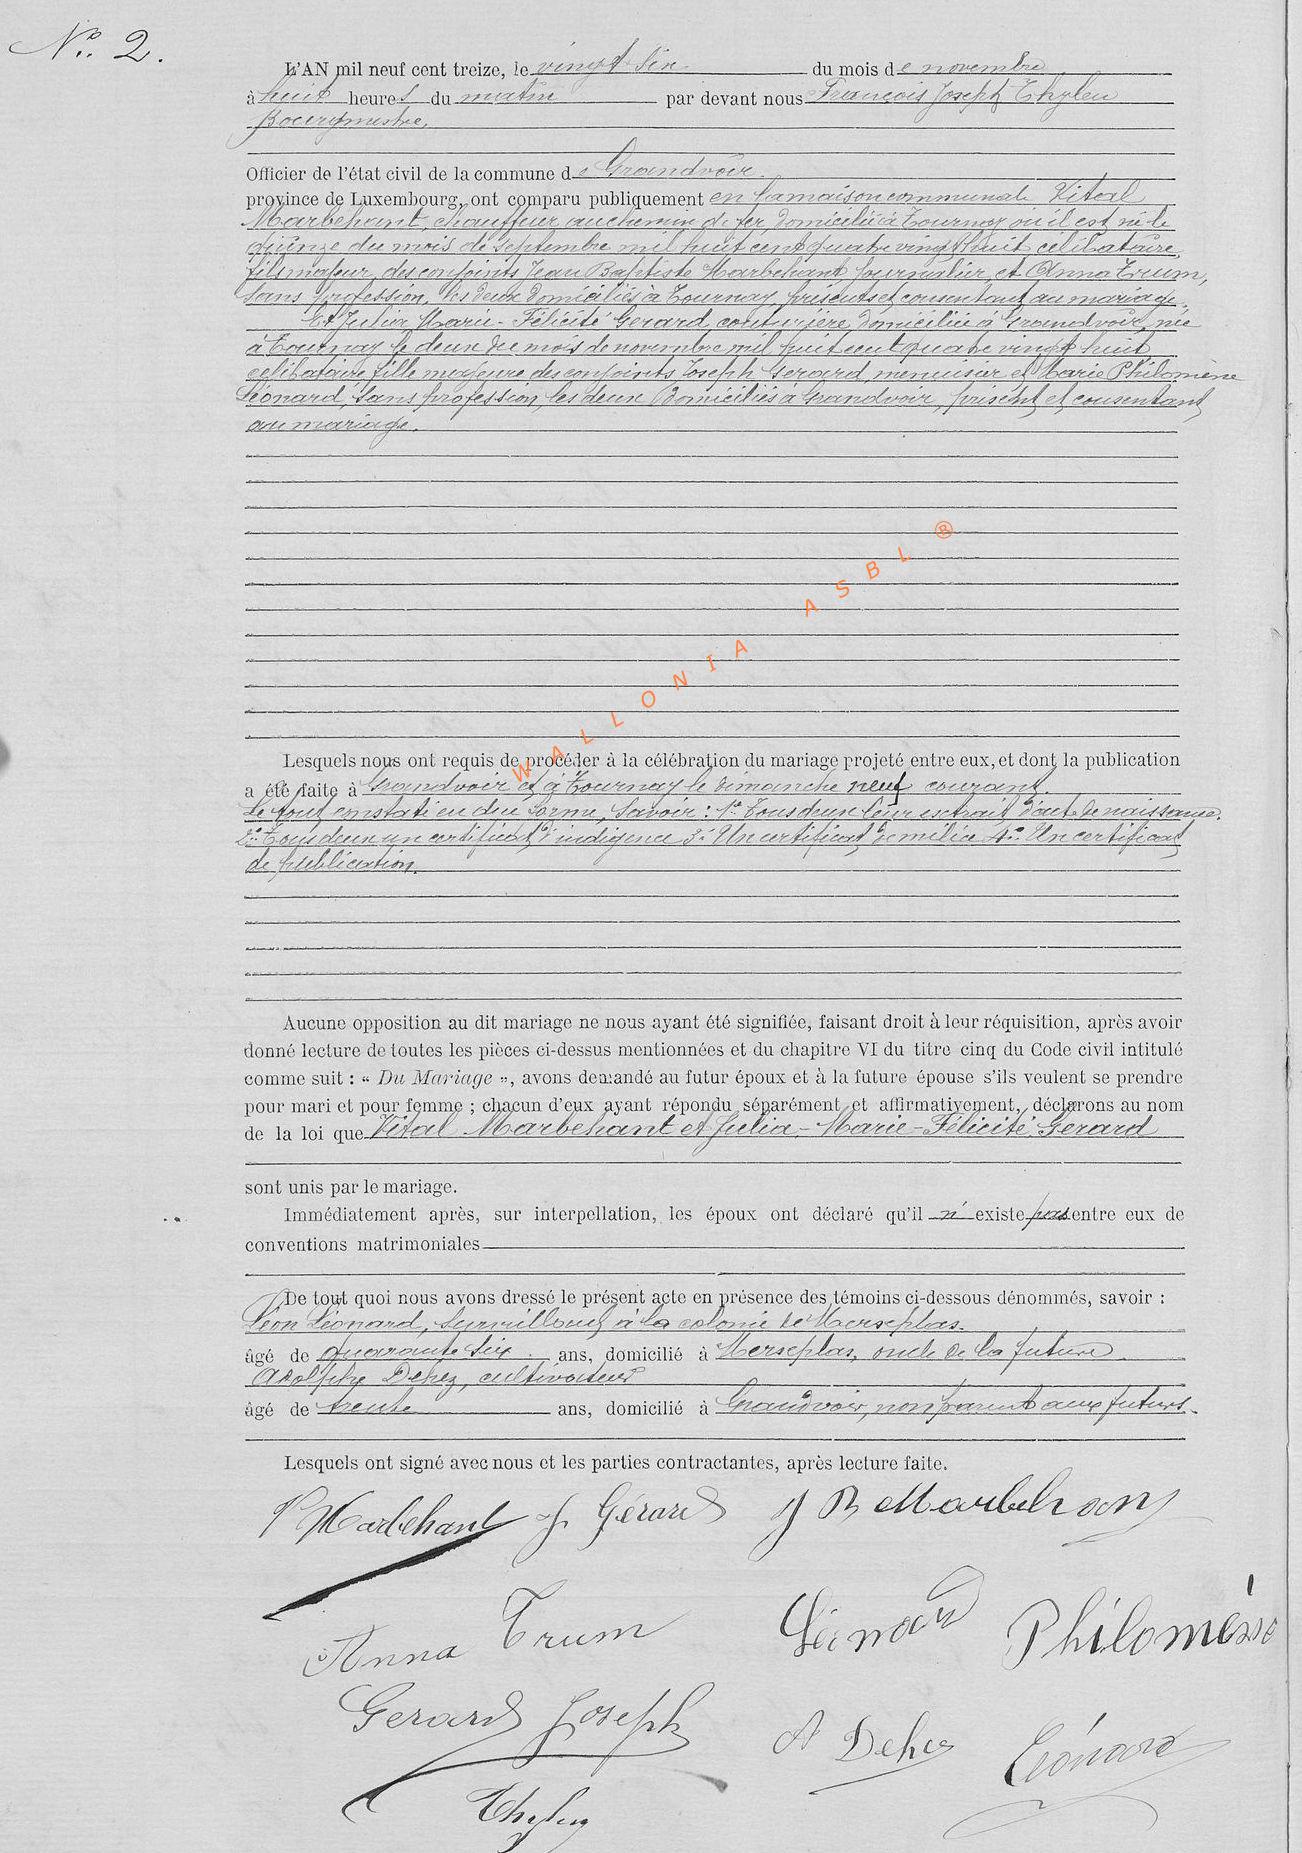 No. 2.
L'AN mil neuf cent treize, le vingt six du mois de novembre
à huit heures du matin par devant nous François Joseph Thylen
Bourgmestre,
Officier de l'état civil de la commune de Grandvoir
province de Luxembourg, ont comparu publiquement en la maison communale Vital
Marbehant, chauffeur au chemin de fer, domicilié à Tournay où il est né le
quinze du mois de septembre mil huit cent quatre vingt huit célibataire,
fils majeur des conjoints Jean Baptiste Marbehant journalier, et Anna Trum,
sans profession, les deux domiciliés à Tournay, présents et consentant au mariage.
Et Julia Marie-Félicité Gerard, couturière, domiciliée à Grandvoir, née
à Tournay le deux du mois de novembre mil huit cent quatre vingt huit
célibataire fille majeure des conjoints Joseph Gerard, menuisier et Marie Philomène
Léonard, sans profession, les deux domiciliés à Grandvoir, présent et consentant
au mariage.
WALLONIA ASBL ®
Lesquels nous ont requis de procéder à la célébration du mariage projeté entre eux, et dont la publication
a été faite à Grandvoir et à Tournay le dimanche neuf courant.
Le tout constaté en due forme, Savoir : 1° Tous deux leur extrait d'acte de naissance.
2° Tous deux un certificat d'indigence 3° Un certificat de milice 4° Un certificat
de publication.
Aucune opposition au dit mariage ne nous ayant été signifiée, faisant droit à leur réquisition, après avoir
donné lecture de toutes les pièces ci-dessus mentionnées et du chapitre VI du titre cinq du Code civil intitulé
comme suit : « Du Mariage », avons demandé au futur époux et à la future épouse s'ils veulent se prendre
pour mari et pour femme ; chacun d'eux ayant répondu séparément et affirmativement, déclarons au nom
de la loi que Vital Marbehant et Julia-Marie-Félicité Gerard
sont unis par le mariage.
Immédiatement après, sur interpellation, les époux ont déclaré qu'il n'existe pas entre eux de
conventions matrimoniales
De tout quoi nous avons dressé le présent acte en présence des témoins ci-dessous dénommés, savoir :
Léon Léonard, surveillant à la colonie de Merxplas.
âgé de quarante six ans, domicilié à Merxplas, oncle de la future
Adolphe Dehez, cultivateur
âgé de trente ans, domicilié à Grandvoir, non parent aux futurs.
Lesquels ont signé avec nous et les parties contractantes, après lecture faite.
V Marbehant J. Gérard J B Marbehant
Anna Trum Léonard Philomène
Gerard Joseph A Dehez Léonard
Thylen